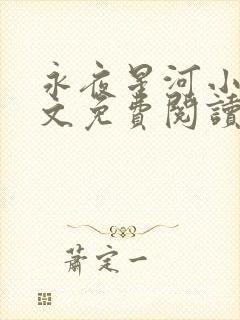 永夜星河小
文免費閱讀
蕭定一